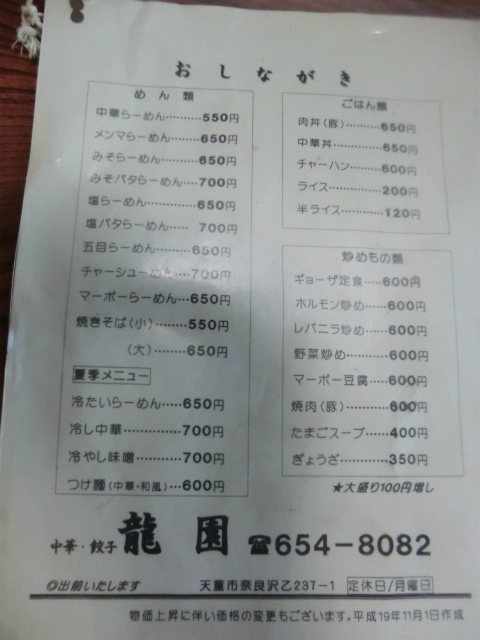 おしながき
めん類
中華らーめん………550円
メンマらーめん……650円
みそらーめん………650円
みそバタらーめん…700円
塩らーめん…………650円
塩バタらーめん… 700円
五目らーめん………650円
チャーシューめん…700円
マーボーらーめん…650円
焼きそば(小)………550円
(大)………650円
夏季メニュー
冷たいらーめん……650円
冷し中華……………700円
冷やし味噌…………700円
つけ麵(中華・和風)…600円
ごはん類
肉丼(豚)…………650円
中華丼……………650円
チャーハン………600円
ライス……………200円
半ライス…………120円
炒めもの類
ギョーザ定食…600円
ホルモン炒め…600円
レバニラ炒め…600円
野菜炒め………600円
マーボー豆腐…600円
焼肉(豚)………600円
たまごスープ……400円
ぎょうざ………350円
★大盛り100円増し
中華・餃子 龍園 ☎654-8082
◎出前いたします 天童市奈良沢乙237-1 定休日/月曜日
物価上昇に伴い価格の変更もございます。平成19年11月1日作成